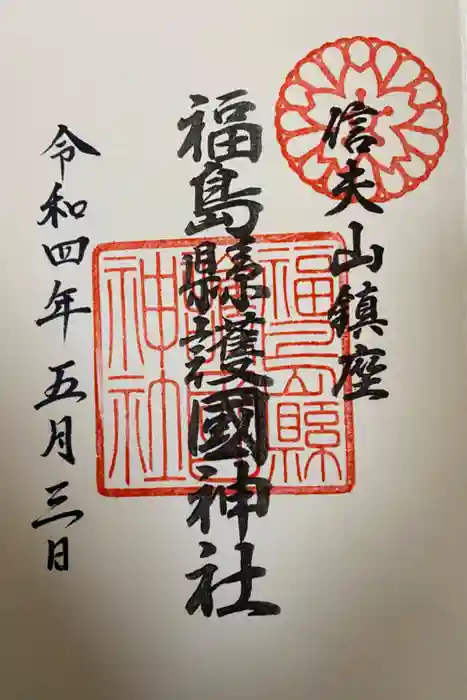 信夫山鎮座
福島縣護國神社
令和四年五月三日
福島縣
護國
神社